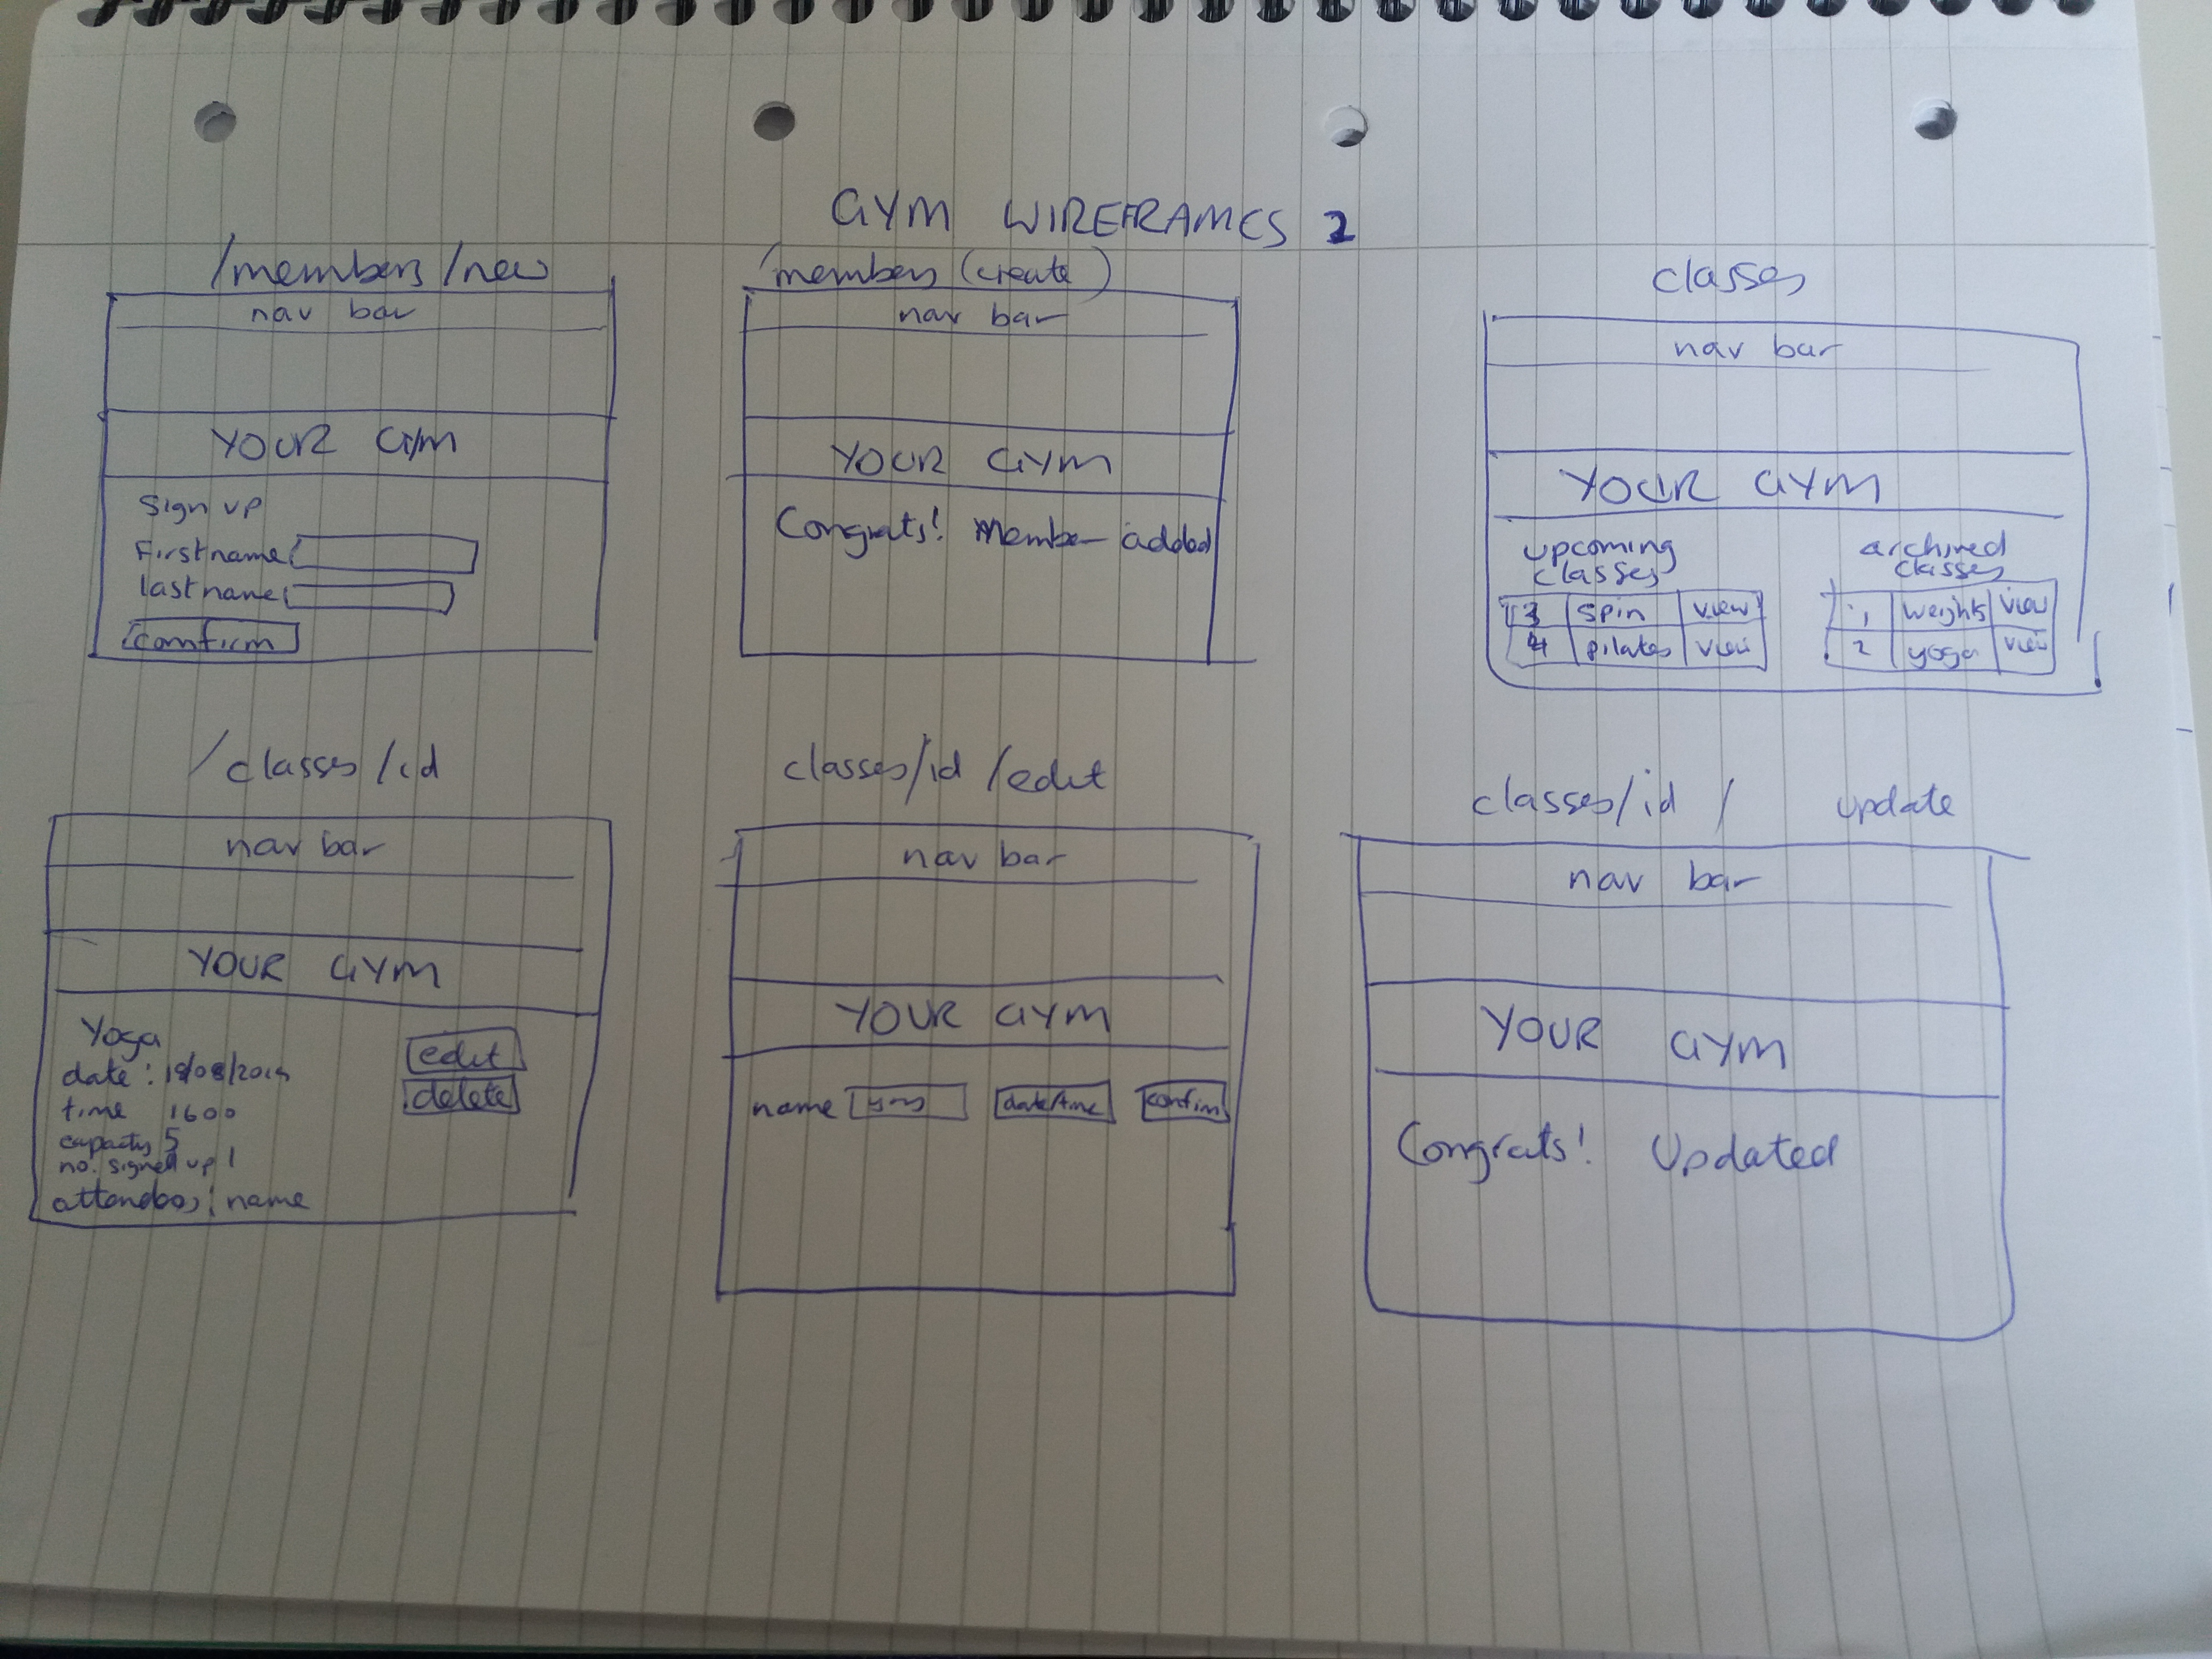 GYM WIREFRAMES 2
/members/new
nav bar
YOUR GYM
Sign up
First name
last name
comfirm
/members (create)
nav bar
YOUR GYM
Congrats! Member added
classes
nav bar
YOUR GYM
upcoming classes
3 spin view
4 pilates view
archived classes
1 weights view
2 yoga view
/classes/id
nav bar
YOUR GYM
Yoga
date: 18/08/2019
time 1600
capacity 5
no. signed up 1
attendees: name
edit
delete
classes/id/edit
nav bar
YOUR GYM
name
date/time
confirm
classes/id/ update
nav bar
YOUR GYM
Congrats! Updated